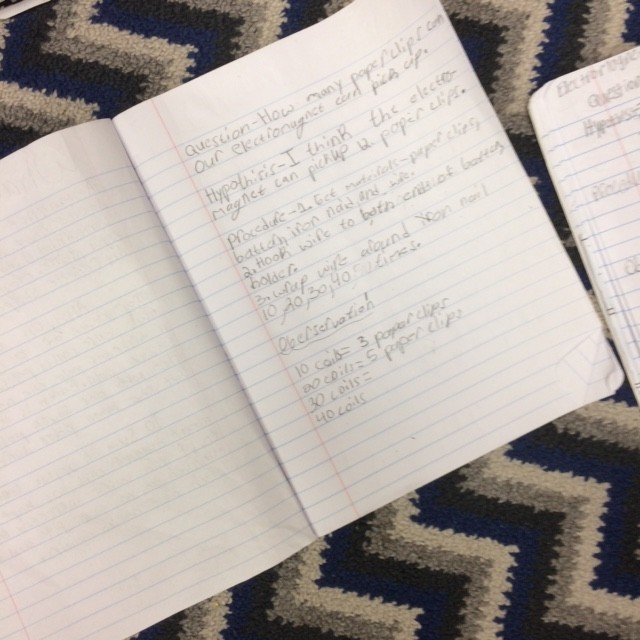 Question-How many paperclips can
our electromagnet can pick up.
Hypothisis-I think the electro
magnet can pickup paper clips.
procdure-1. Get materials-paperclips
battery, iron nail and
2. Hook wire to both ends of
3. wrap wire around iron nail
10,20,30,40
Observation!
10 coils= 3 paper clips
20 coils= 5 paper clips
30 coils=
40 coils
Question